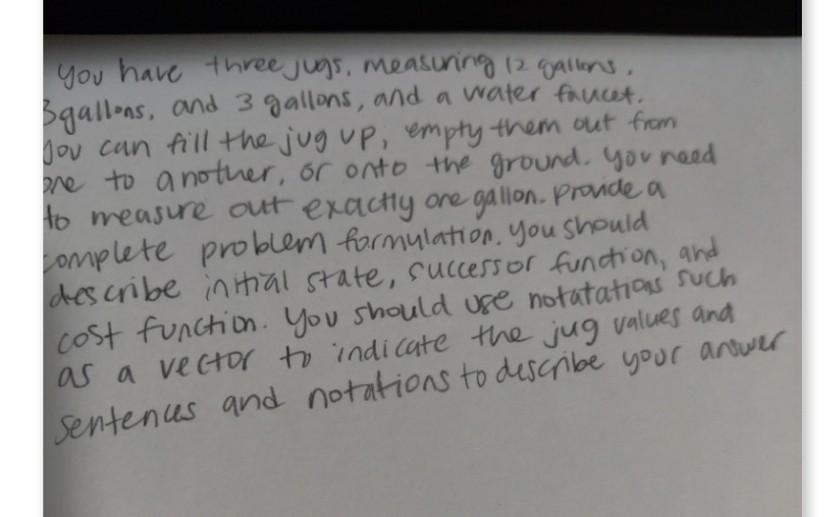 you have three jugs, measuring 12 gallons,
3gallons, and 3 gallons, and a water faucet.
you can fill the jug up, empty them out from
one to another, or onto the ground. you need
to measure out exactly one gallon. provide a
complete problem formulation. you should
describe initial state, successor function, and
cost function. you should use notatations such
as a vector to indicate the jug values and
sentences and notations to describe your answer